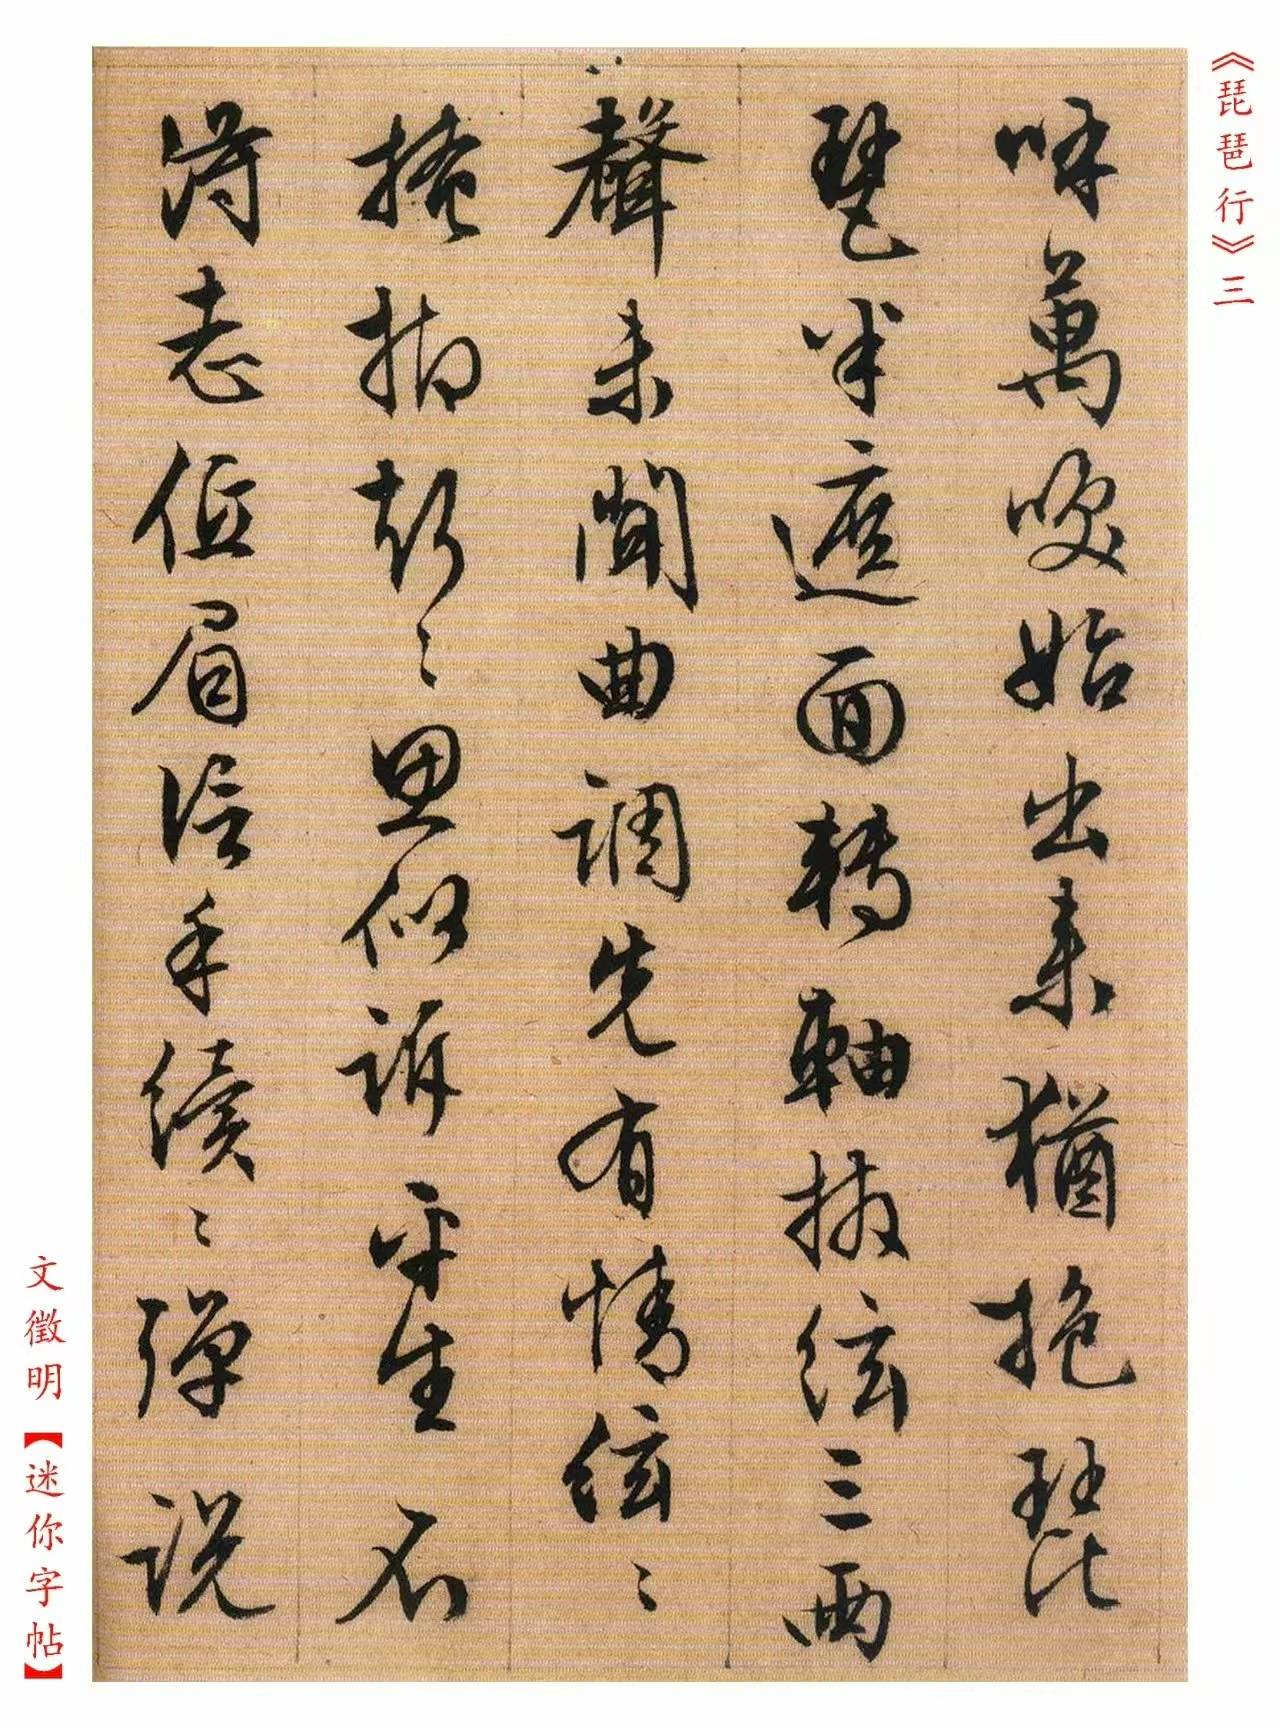 《琵琶行》三
呼萬喚始出来猶抱琵
琶半遮面轉軸撥絃三兩
聲未聞曲調先有情絃〻
掩抑聲〻思似訴平生不
得志低眉信手續〻彈說
文徵明【迷你字帖】